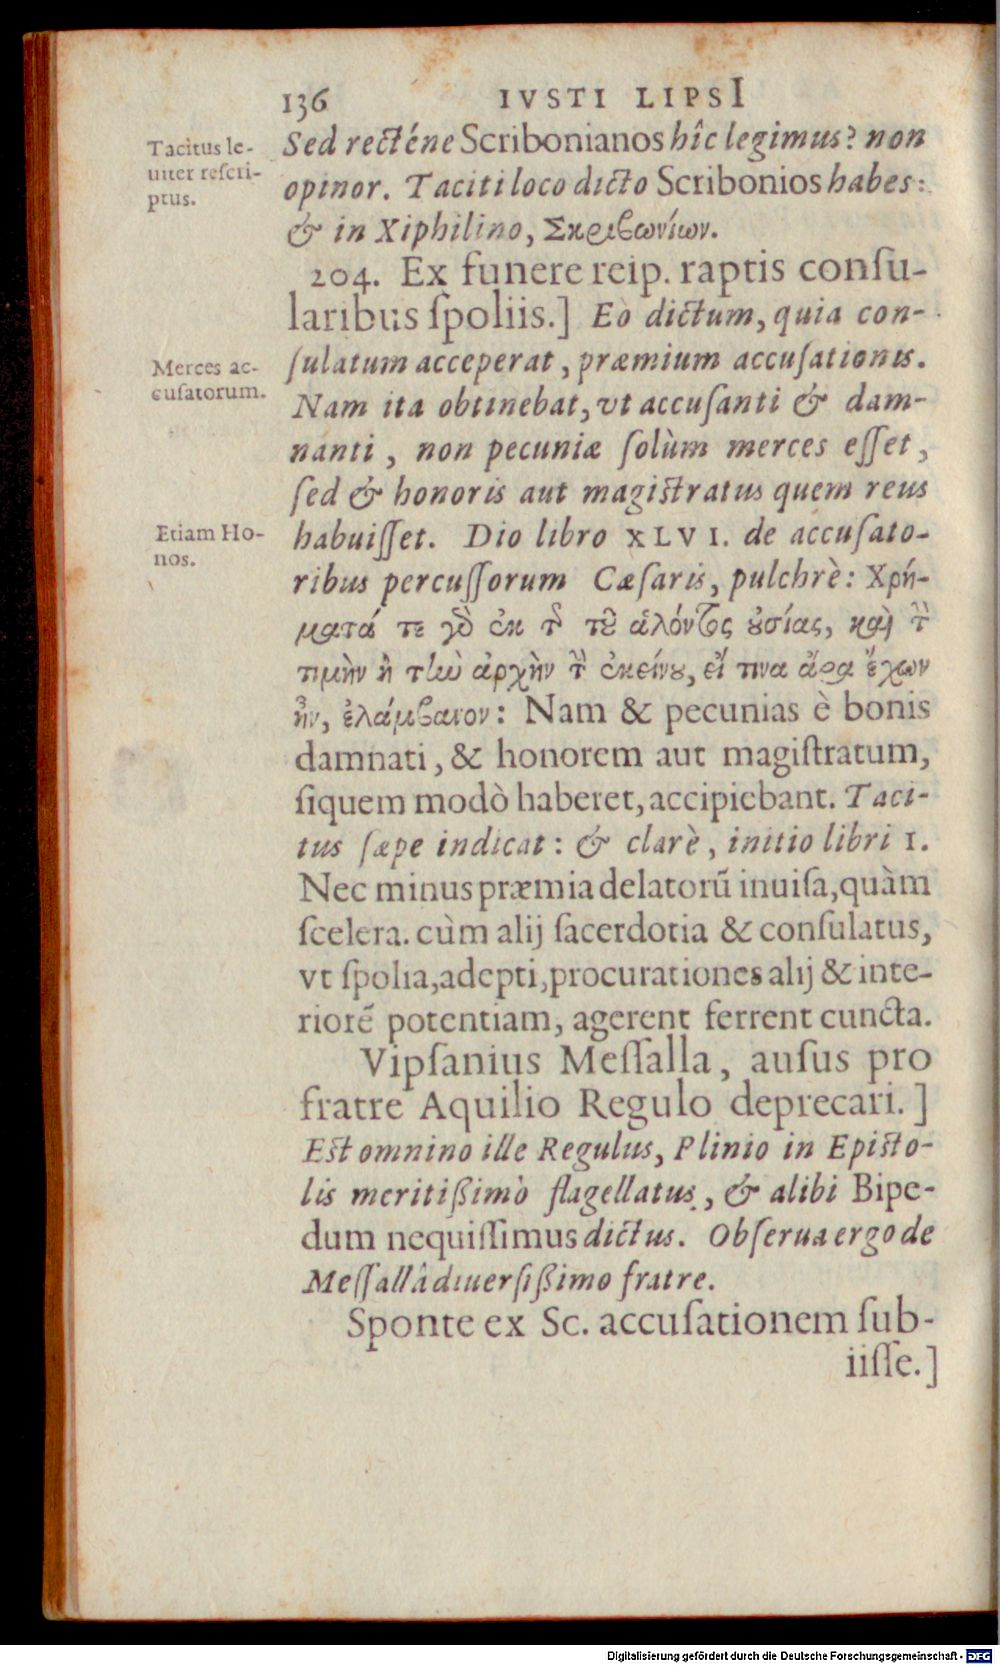 136 IVSTI LIPSI
Tacitus le-
uiter rescri-
ptus.
Sed recténe Scribonianos hîc legimus? non
opinor. Taciti loco dicto Scribonios habes:
& in Xiphilino, Σκριβωνίων.
204. Ex funere reip. raptis consu-
laribus spoliis.] Eò dictum, quia con-
Merces ac-
cusatorum.
sulatum acceperat, præmium accusationis.
Nam ita obtinebat, vt accusanti & dam-
nanti, non pecuniæ solùm merces esset,
sed & honoris aut magistratus quem reus
Etiam Ho-
nos.
habuisset. Dio libro XLVI. de accusato-
ribus percussorum Cæsaris, pulchrè: Χρή-
ματά τε γὸ ἐκ τῆς τοῦ ἁλόντος οὐσίας, καὶ τὴν
τιμὴν ἢ τὴν ἀρχὴν τὴν ἐκείνου, εἴ τινα ἄρα ἔχων
ἦν, ἐλάμβανον: Nam & pecunias è bonis
damnati, & honorem aut magistratum,
siquem modò haberet, accipiebant. Taci-
tus sæpe indicat: & clarè, initio libri I.
Nec minus præmia delatorũ inuisa, quàm
scelera. cùm alij sacerdotia & consulatus,
vt spolia, adepti, procurationes alij & inte-
riorẽ potentiam, agerent ferrent cuncta.
Vipsanius Messalla, ausus pro
fratre Aquilio Regulo deprecari.]
Est omnino ille Regulus, Plinio in Episto-
lis meritißimò flagellatus, & alibi Bipe-
dum nequissimus dictus. Obserua ergo de
Messallâ diuersißimo fratre.
Sponte ex Sc. accusationem sub-
iisse.]
Digitalisierung gefördert durch die Deutsche Forschungsgemeinschaft - DFG